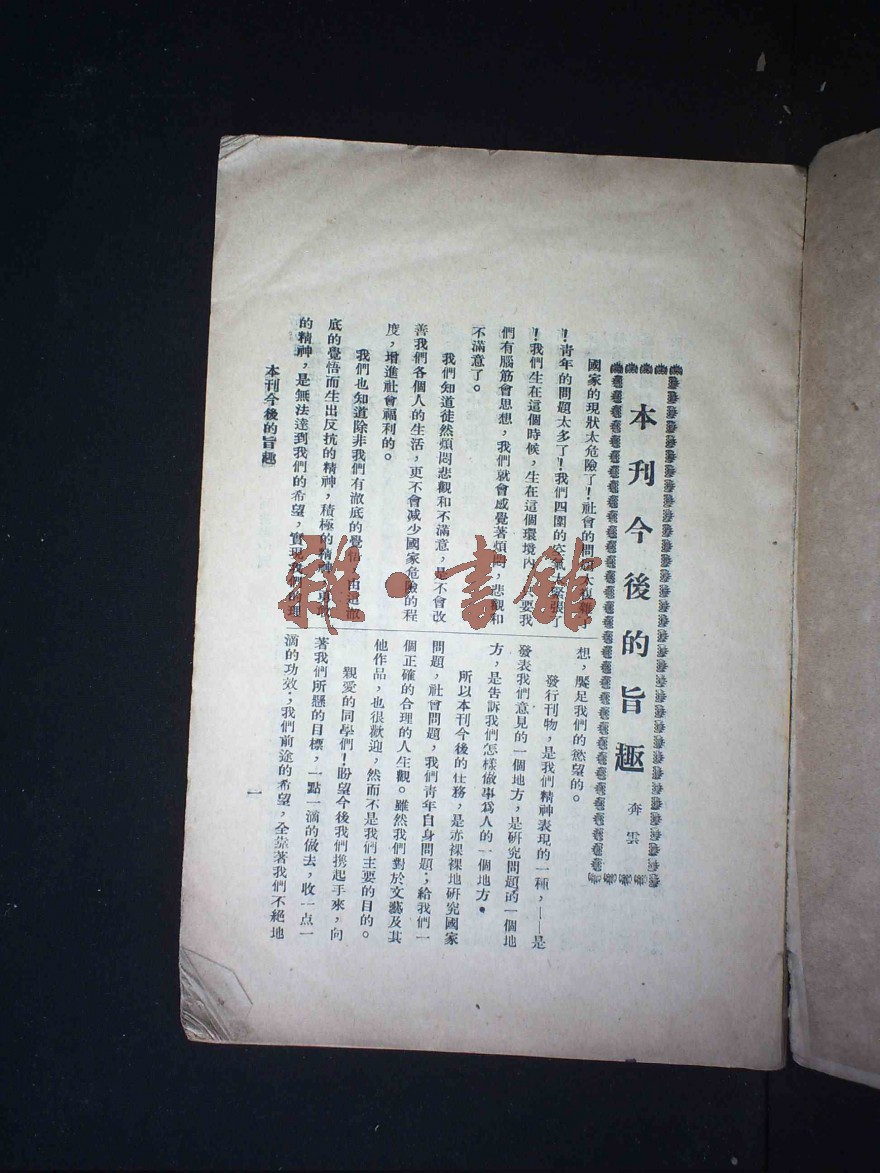 本刊今後的旨趣
奔雲
國家的現狀太危險了!社會的問題太複雜了
!青年的問題太多了!我們四圍的空氣太緊張了
!我們生在這個時候,生在這個環境內,只要我
們有腦筋會思想,我們就會感覺著煩悶,悲觀和
不滿意了。
我們知道徒然煩悶悲觀和不滿意,是不會改
善我們各個人的生活,更不會减少國家危險的程
度,增進社會福利的。
我們也知道除非我們有澈底的覺悟,由這澈
底的覺悟而生出反抗的精神,積極的精神,
的精神,是無法達到我們的希望,實現我們的理
想,饜足我們的慾望的。
發行刊物,是我們精神表現的一種,——是
發表我們意見的一個地方,是研究問題的一個地
方,是告訴我們怎樣做事爲人的一個地方。
所以本刊今後的任務,是赤裸裸地研究國家
問題,社會問題,我們靑年自身問題;給我們一
個正確的合理的人生觀。雖然我們對於文藝及其
他作品,也很歡迎,然而不是我們主要的目的。
親愛的同學們!盼望今後我們携起手來,向
著我們所懸的目標,一點一滴的做去,收一点一
滴的功效;我們前途的希望,全靠著我們不絕地
本刊今後的旨趣
一
雜·書館